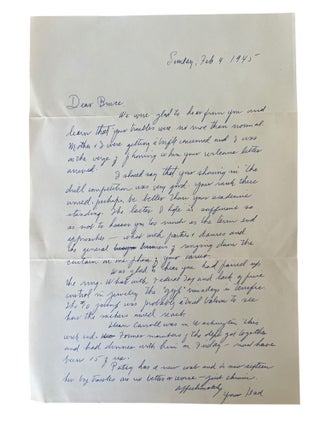 Sunday, Feb 4 1945
Dear Bruce,
We were glad to hear from you and
learn that your troubles was no more than normal
Mother & I were getting a bit concerned and I was
on the verge of phoning when your welcome letter
arrived.
I should say that your showing in the
drill competition was very good. Your rank there
perhaps, be better than your academic
standing. The latter I hope is sufficient so
as not to harass you too much as the term end
approaches - what with parties & dances and
the general business of ringing down the
curtain on one phase of your career.
Was glad to hear you had passed up
the ring. What with Federal Tax and lack of price
control in jewelry the is terrific.
The to see
how the reach.
Carroll was in Washington this
week end. Former members of the dept got together
and had dinner with him on Friday - must have
been 15 of us.
Patsy has a new coat and is now sixteen
her no better or worse - just
Affectionately
Your Dad